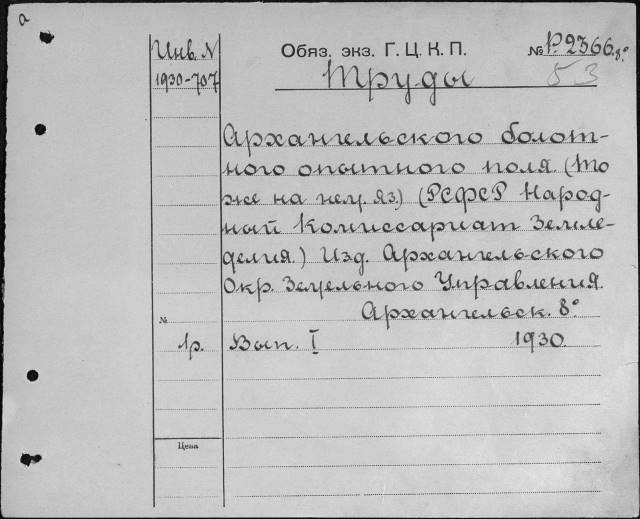 а
Инв. N
Обяз. экз. Г. Ц. К. П.
№ Р.2366.8°
1930-707
Труды
53
Архангельского болот-
ного опытного поля. (То
же на нем. яз.) (РСФСР Народ-
ный Комиссариат Земле-
делия.) Изд. Архангельского
Окр. Земельного Управления.
Архангельск. 8°
№
1р.
Вып. I
1930.
Цена